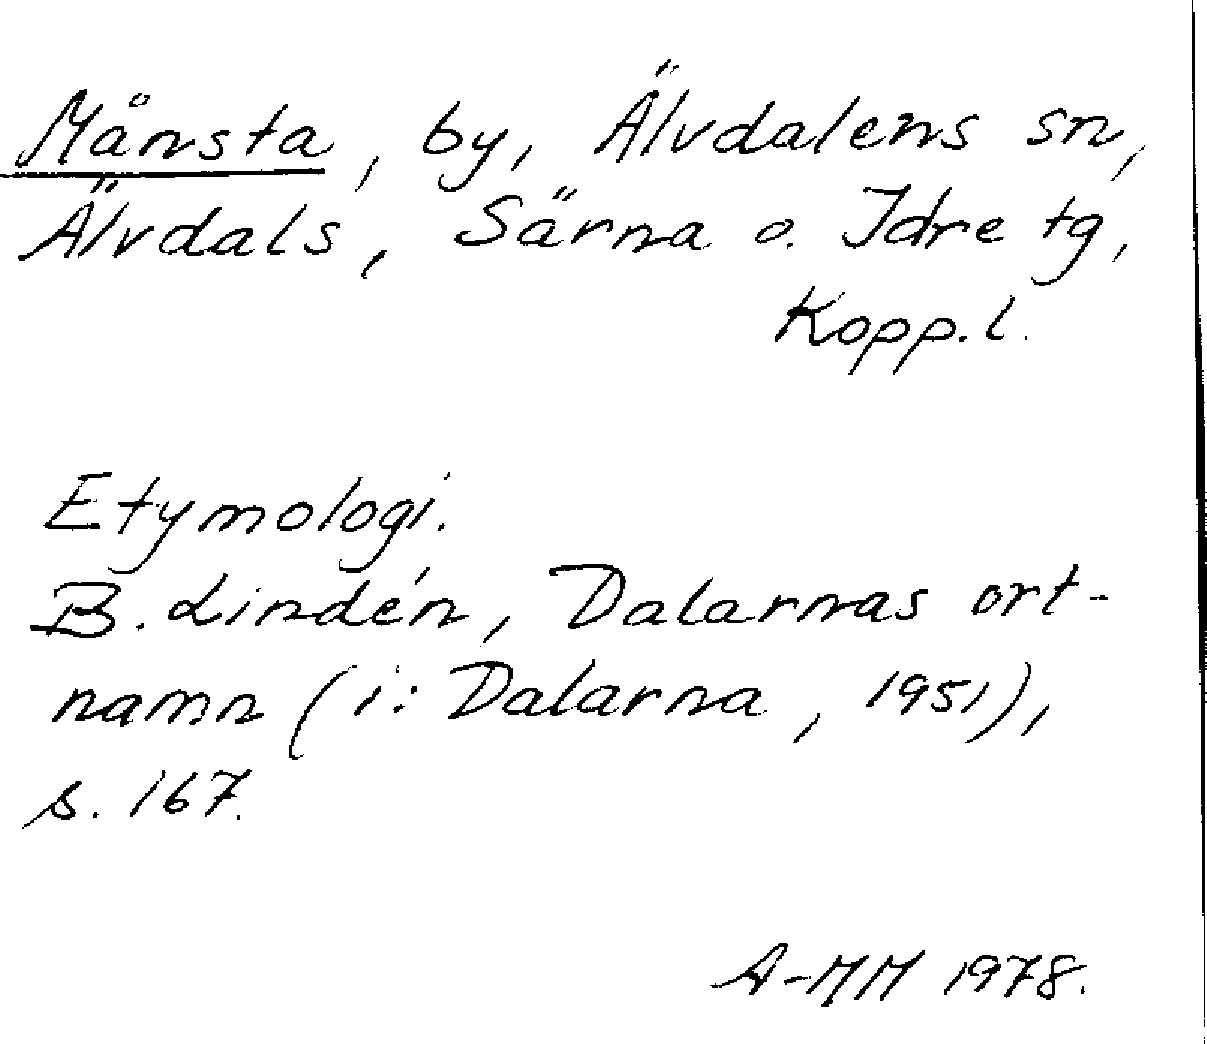 Månsta, by, Älvdalens sn,
Älvdals, Särna o. Idre tg,
Kopp. l.
Etymologi.
B. Lindén, Dalarnas ort-
namn (i: Dalarna, 1951),
s. 167.
A-MM 1978.